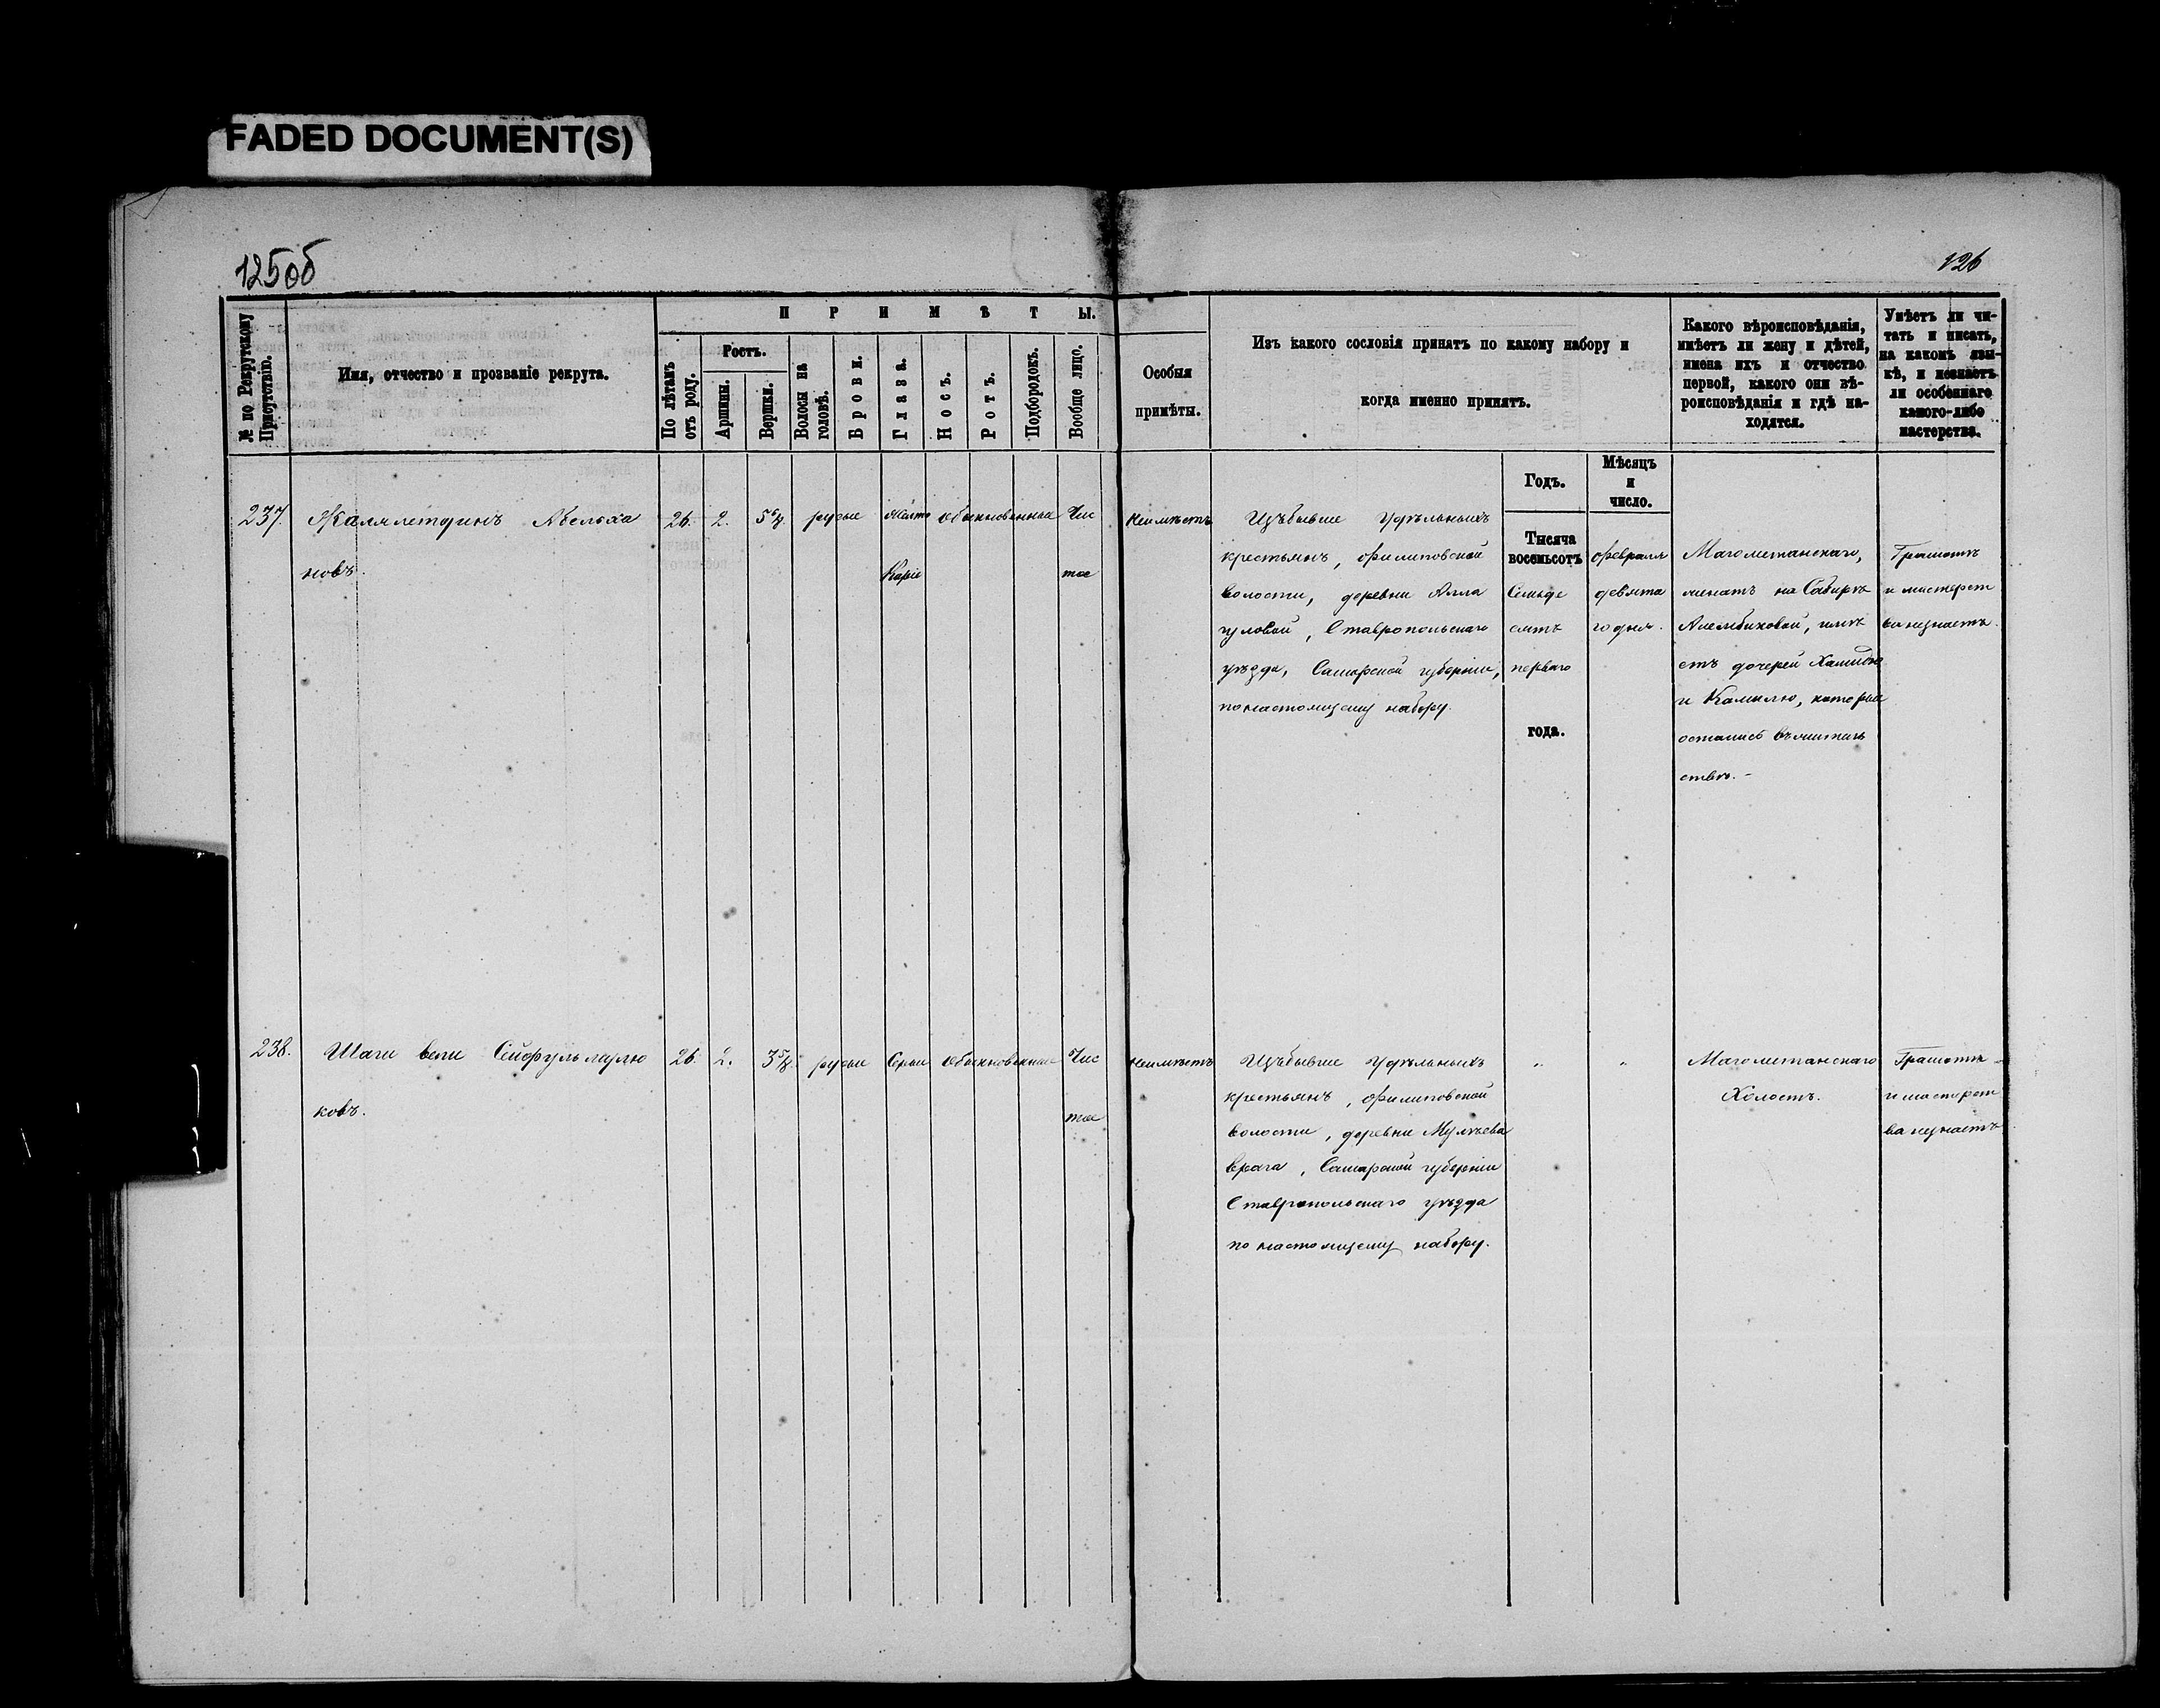 FADED DOCUMENT(S)
125об
126
№ по Рекрутскому Присутствію.
Имя, отчество и прозваніе рекрута.
ПРИМѢТЫ.
По лѣтамъ отъ роду.
Ростъ.
Аршины.
Вершки.
Волосы на головѣ.
Брови.
Глаза.
Носъ.
Ротъ.
Подбородокъ.
Вообще лицо.
Особыя
примѣты.
Изъ какого сословія принятъ по какому набору и
когда именно принятъ.
Какого вѣроисповѣданія,
имѣетъ ли жену и дѣтей,
имена ихъ и отчество
первой, какого они вѣ-
роисповѣданія и гдѣ на-
ходятся.
Умѣетъ ли чи-
тать и писать,
на какомъ язы-
кѣ, и незнаетъ
ли особеннаго
какого-либо
мастерства.
Годъ.
Мѣсяцъ
и
число.
237.
26.
2.
русые
Желто
Каріе
обыкновенные
Чис
тое
Неимѣетъ
Изъбывше Удѣльныхъ
крестьянъ, Филиповской
волости, деревни Алла
гуловой, Ставропольскаго
уѣзда, Самарской губерніи,
понастоящему набору.
Тысяча
восемьсотъ
Семьде
сятъ
перваго
года.
Февраля
девята
го дня.
Магометанскаго,
женатъ на
имѣ
етъ дочерей
и Камилю, которые
остались въ
ствѣ. -
Грамотѣ
и мастерст
ва незнаетъ.
238.
Шаги вели Сейфульмулю
ковъ.
26.
2.
русые
Серые
обыкновенные
Чис
тое
Неимѣетъ
Изъбывше Удѣльныхъ
крестьянъ, Филиповской
волости, деревни Мулѣева
врага, Самарской губерніи
Ставропольскаго уѣзда
по настоящему набору.
"
"
Магометанскаго
Холостъ.
Грамотѣ
и мастерст
ва незнаетъ